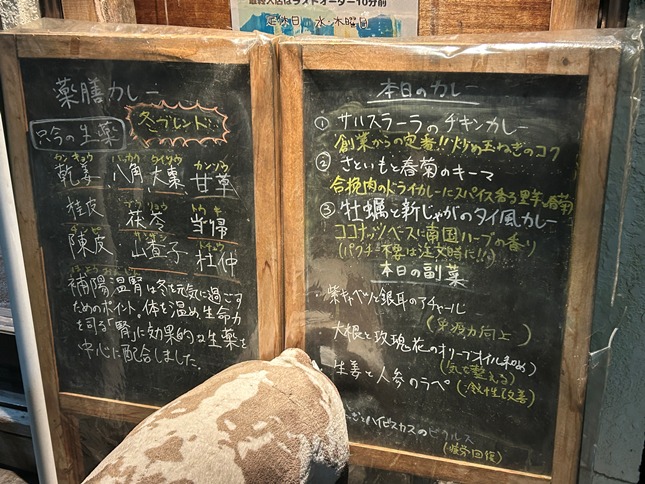 最終入店はラストオーダー10分前
定休日 水・木曜日
薬膳カレー
冬ブレンド
只今の生薬
カンキョウ ハッカク タイソウ カンゾウ
乾姜 八角 大棗 甘草
ブクリョウ トウキ
桂皮 茯苓 当帰
チンピ サンザシ トチュウ
陳皮 山査子 杜仲
補陽温腎は冬を元気に過ごす
ためのポイント。体を温め生命力
を司る「腎」に効果的な生薬を
中心に配合しました。
本日のカレー
① サルスラーラのチキンカレー
創業からの定番!!炒め玉ねぎのコク
② さといもと春菊のキーマ
合挽肉のドライカレーにスパイス香る里芋と春菊
③ 牡蠣と新じゃがのタイ風カレー
ココナッツベースに南国ハーブの香り
(パクチー不要は注文時に!!)
本日の副菜
紫キャベツと銀耳のアチャール
(免疫力向上)
大根と玫瑰花のオリーブオイル和め
(気を整える)
生姜と人参のラペ (冷性改善)
ごとハイビスカスのピクルス
(疲労回復)